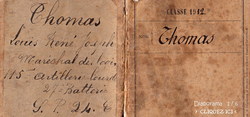 Thomas
Louis René Joseph
Maréchal des logis
115e Artillerie lourde
2e Batterie
S. P. 24.
CLASSE 1912.
Thomas
Diaporama
CLIQUEZ ICI